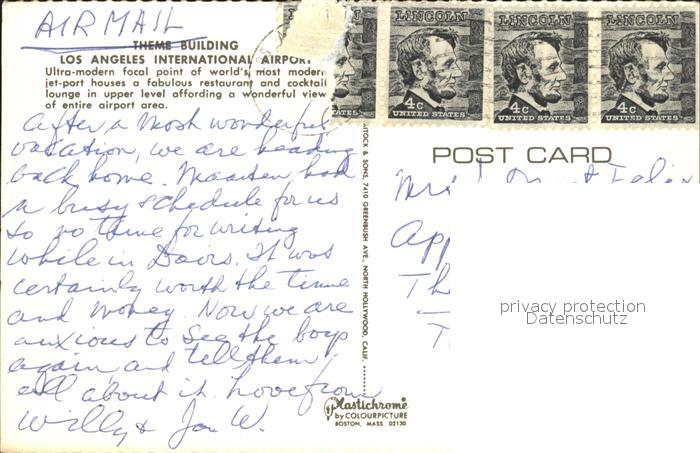 AIR MAIL
THEME BUILDING
LOS ANGELES INTERNATIONAL AIRPORT
Ultra-modern focal point of world's most modern
jet-port houses a fabulous restaurant and cocktail
lounge in upper level affording a wonderful view
of entire airport area.
After a most wonderful
vacation, we are heading
back home. Maarten had
a busy schedule for us
so no time for writing
while in Davis. It was
certainly worth the time
and money. Now we are
anxious to see the boys
again and tell them
all about it. Love from
Willy & Jan W.
LINCOLN
4c
UNITED STATES
LINCOLN
4c
UNITED STATES
LINCOLN
4c
UNITED STATES
UNITED STATES
POST CARD
& SONS, 7410 GREENBUSH AVE., NORTH HOLLYWOOD, CALIF.
Plastichrome
by COLOURPICTURE
BOSTON, MASS. 02130
privacy protection
Datenschutz